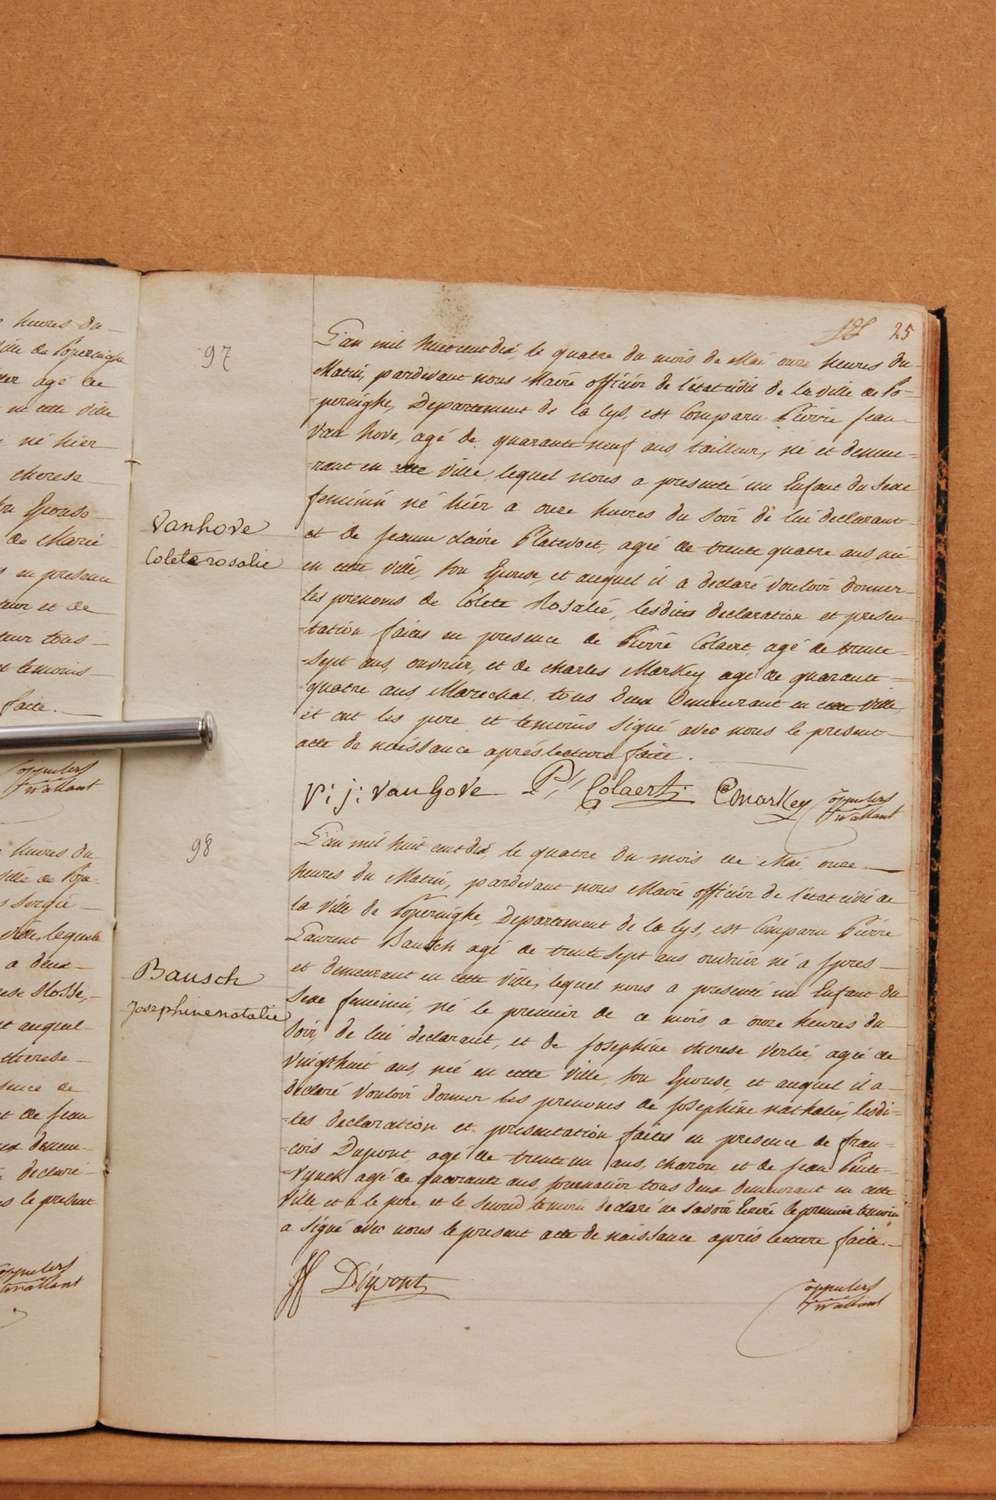 heures du
ville de Poperinghe
agé de
en cette ville
né hier
therese
Epouse
de Marie
en presence
et de
tous
temoins
faite.
heures du
ville de Pope
lequel
a deux
auquel
therese
de
et de jean
deux demeu-
declaré
le présent
25
97
L'an mil huit cent dix, le quatre du mois de Mai onze heures du
Matin, pardevant nous Maire officier de l'état civil de la ville de Po-
-peringhe, Departement de la Lys, est Comparu Pierre jean
Van hove, agé de quarante neuf ans tailleur, né et demeu-
-rant en cette ville, lequel nous a presenté un Enfant du Sexe
feminin né hier a onze heures du soir de lui declarant
et de jeanne claire Platevoet, agée de trente quatre ans née
en cette ville, son Epouse, et auquel il a declaré vouloir donner
les prenoms de Colete Rosalie, lesdites declaration et presen-
-tation faites en presence de Pierre Colaert agé de trente
-sept ans, ouvrier, et de charles Markey agé de quarante
-quatre ans Marechal, tous deux demeurant en cette ville,
et ont les pere et temoins signé avec nous le present
acte de naissance aprés lecture faite.
Vanhove
Colete rosalie
P: j: van hove P. Colaert C markey
98
L'an mil huit cent dix, le quatre du mois de Mai, onze
heures du Matin, pardevant nous Maire officier de l'état civil de
la ville de Poperinghe, Departement de la Lys, est Comparu Pierre
Laurent Bausch agé de trente sept ans ouvrier né a Ypres
et demeurant en cette ville, lequel nous a presenté un Enfant du
Sexe feminin, né le premier de ce mois a onze heures du
soir, de lui declarant, et de Josephine therese Verlie, agée de
vingt huit ans, née en cette ville, son Epouse, et auquel il a
declaré vouloir donner les prenoms de Josephine nathalie, lesdi-
-tes declaration et presentation faites en presence de fran-
-cois Dupont agé de trente un ans, charon et de jean
agé de quarante ans, journalier tous deux demeurant en cette
ville et a le pere et le second temoin declaré ne savoir Ecrire le premier temoin
a signé avec nous le present acte de naissance aprés lecture faite.
Bausch
Josephine natalie
Dupont